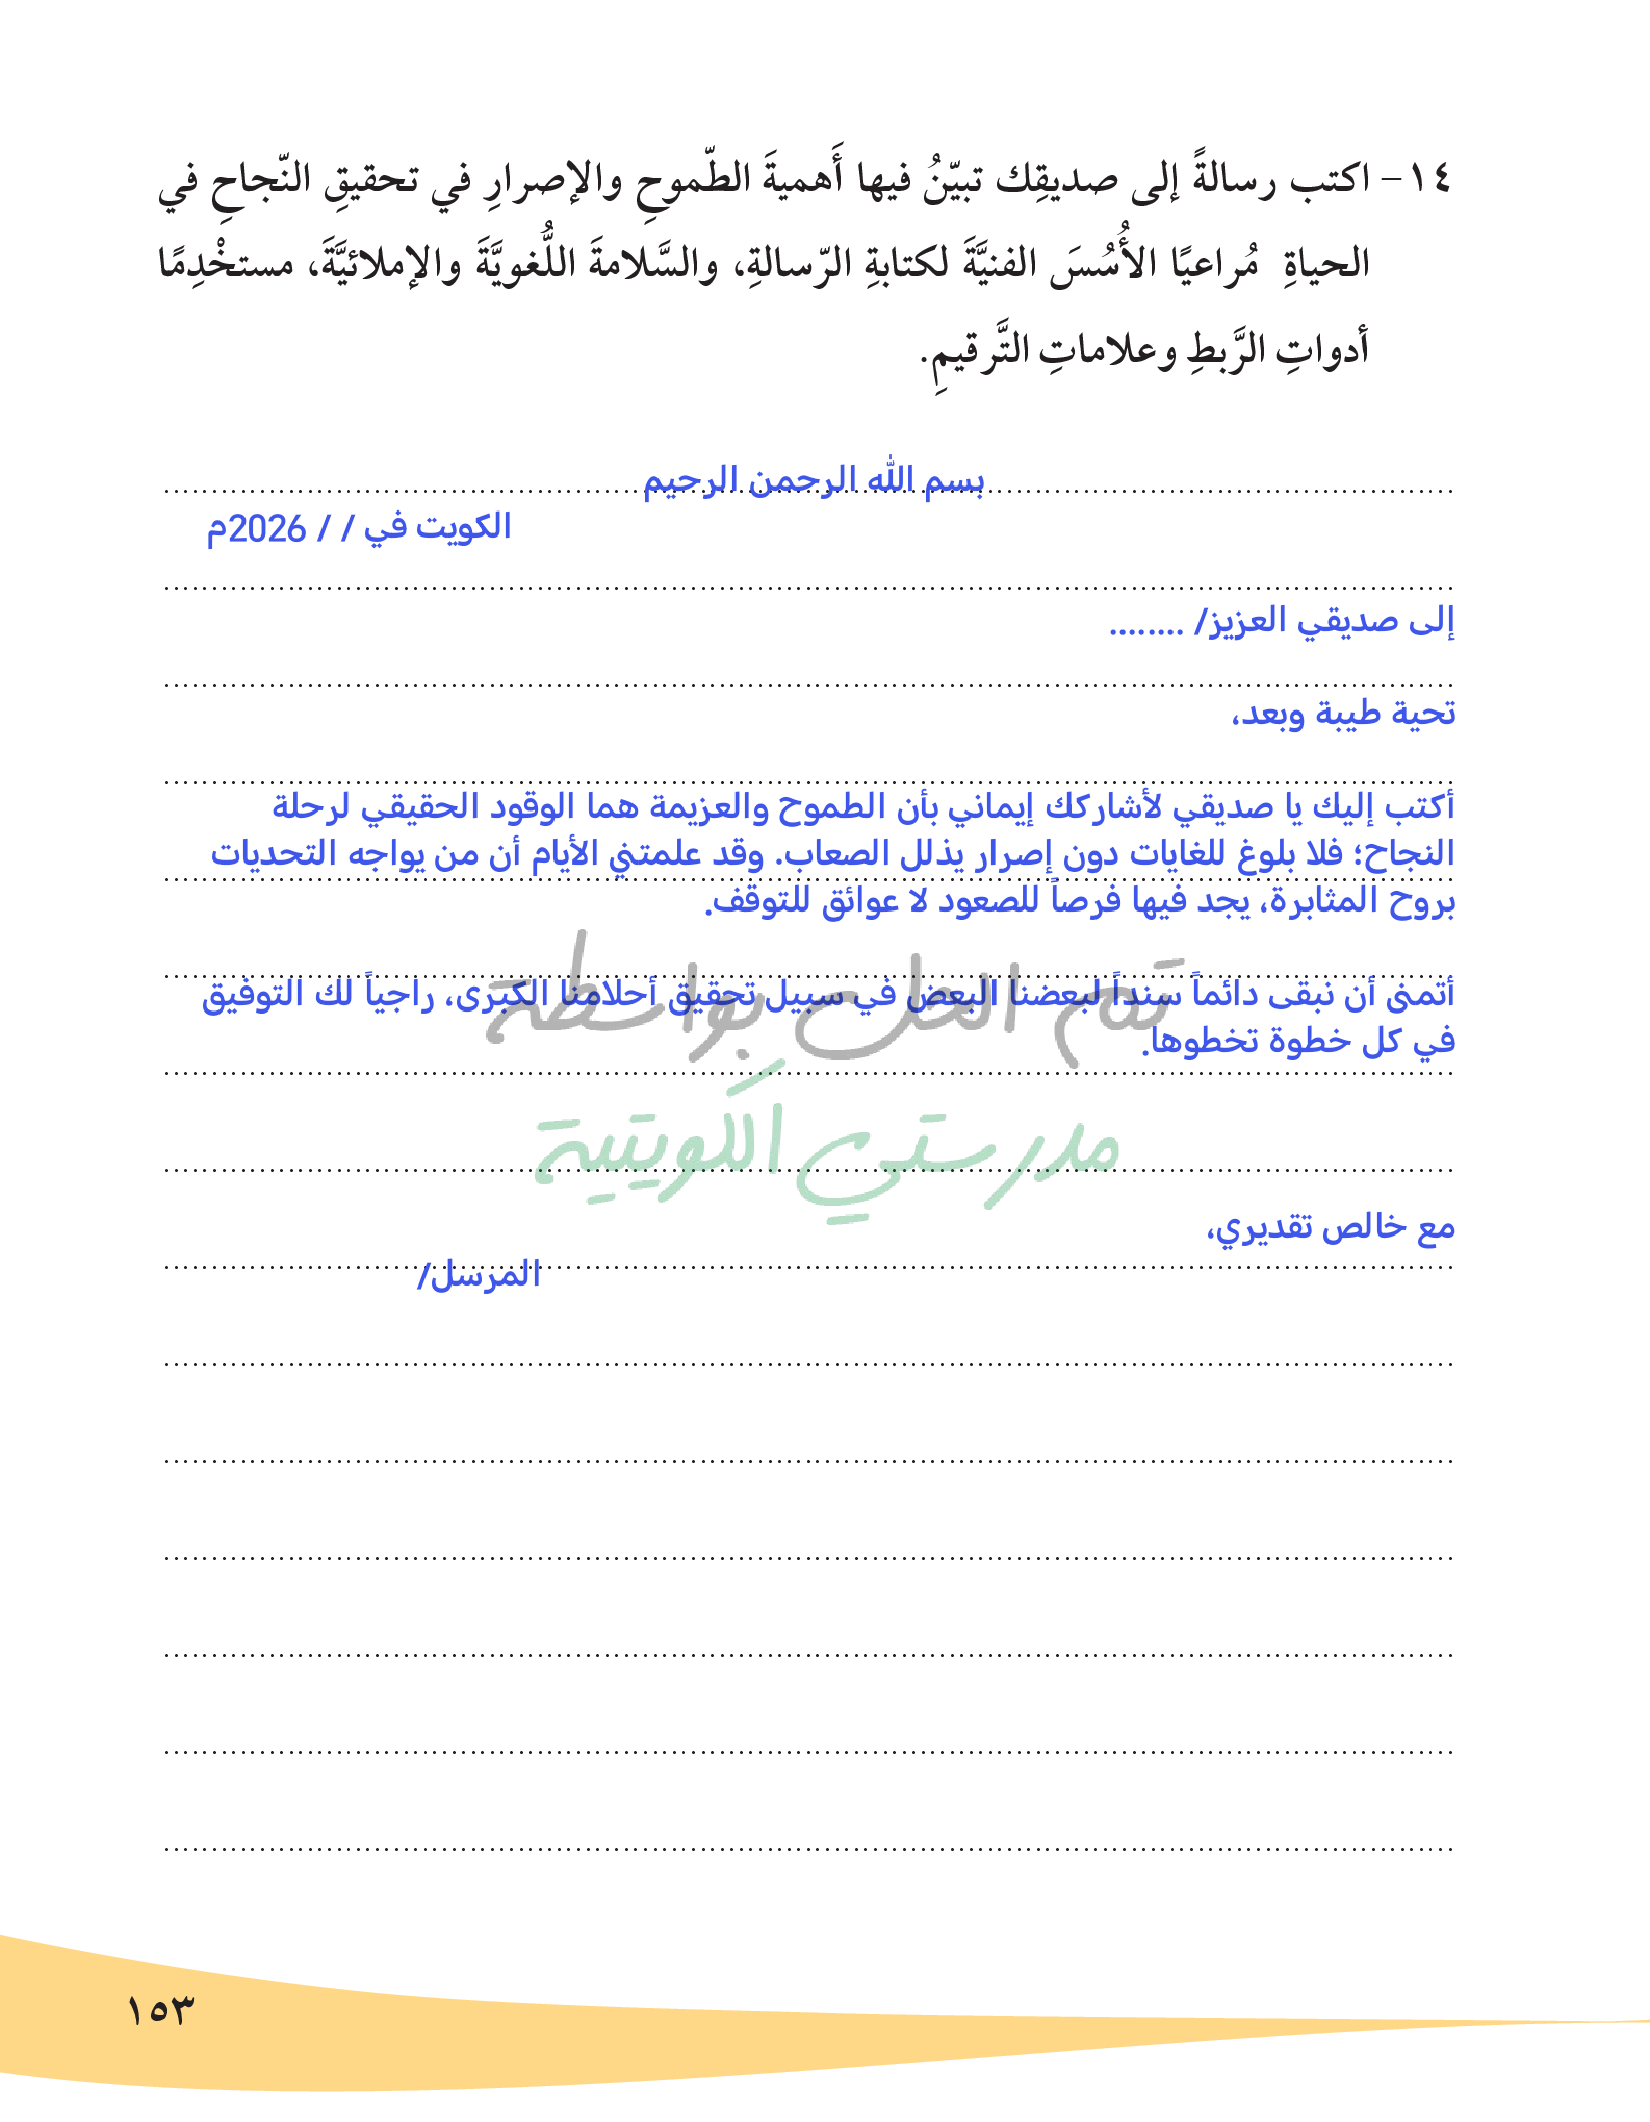 ١٤- اكتب رسالةً إلى صديقِك تبيّنُ فيها أَهميةَ الطّموحِ والإصرارِ في تحقيقِ النّجاحِ في
الحياةِ مُراعيًا الأُسُسَ الفنيَّةَ لكتابةِ الرّسالةِ، والسَّلامةَ اللُّغويَّةَ والإملائيَّةَ، مستخْدِمًا
أدواتِ الرَّبطِ وعلاماتِ التَّرقيمِ.
بسم الله الرحمن الرحيم
الكويت في / / 2026م
إلى صديقي العزيز/ ........
تحية طيبة وبعد،
أكتب إليك يا صديقي لأشاركك إيماني بأن الطموح والعزيمة هما الوقود الحقيقي لرحلة
النجاح؛ فلا بلوغ للغايات دون إصرار يذلل الصعاب. وقد علمتني الأيام أن من يواجه التحديات
بروح المثابرة، يجد فيها فرصاً للصعود لا عوائق للتوقف.
أتمنى أن نبقى دائماً سنداً لبعضنا البعض في سبيل تحقيق أحلامنا الكبرى، راجياً لك التوفيق
في كل خطوة تخطوها.
تم الحل بواسطة
مدرستي الكويتية
مع خالص تقديري،
المرسل/
١٥٣